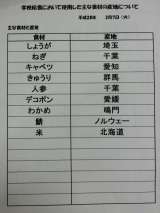 学校給食において使用した主な食材の産地について
平成28年 3月7日（火）
主な食材の産地
食材 産地
しょうが 埼玉
ねぎ 千葉
キャベツ 愛知
きゅうり 群馬
人参 千葉
デコポン 愛媛
わかめ 鳴門
鯖 ノルウェー
米 北海道